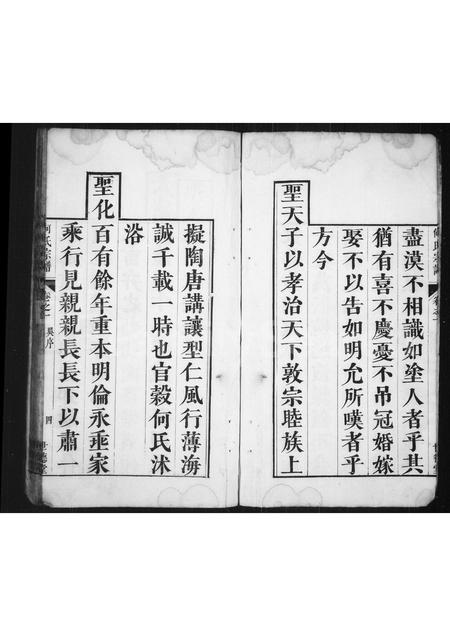 盡漠不相識如塗人者乎其
猶有喜不慶憂不吊冠婚嫁
娶不以告如明允所嘆者乎
方今
聖天子以孝治天下敦宗睦族上
擬陶唐講讓型仁風行薄海
誠千載一時也官榖何氏沐
浴
聖化百有餘年重本明倫永乖家
乘行見親親長長下以肅一
何氏宗譜
卷之一
異序
四